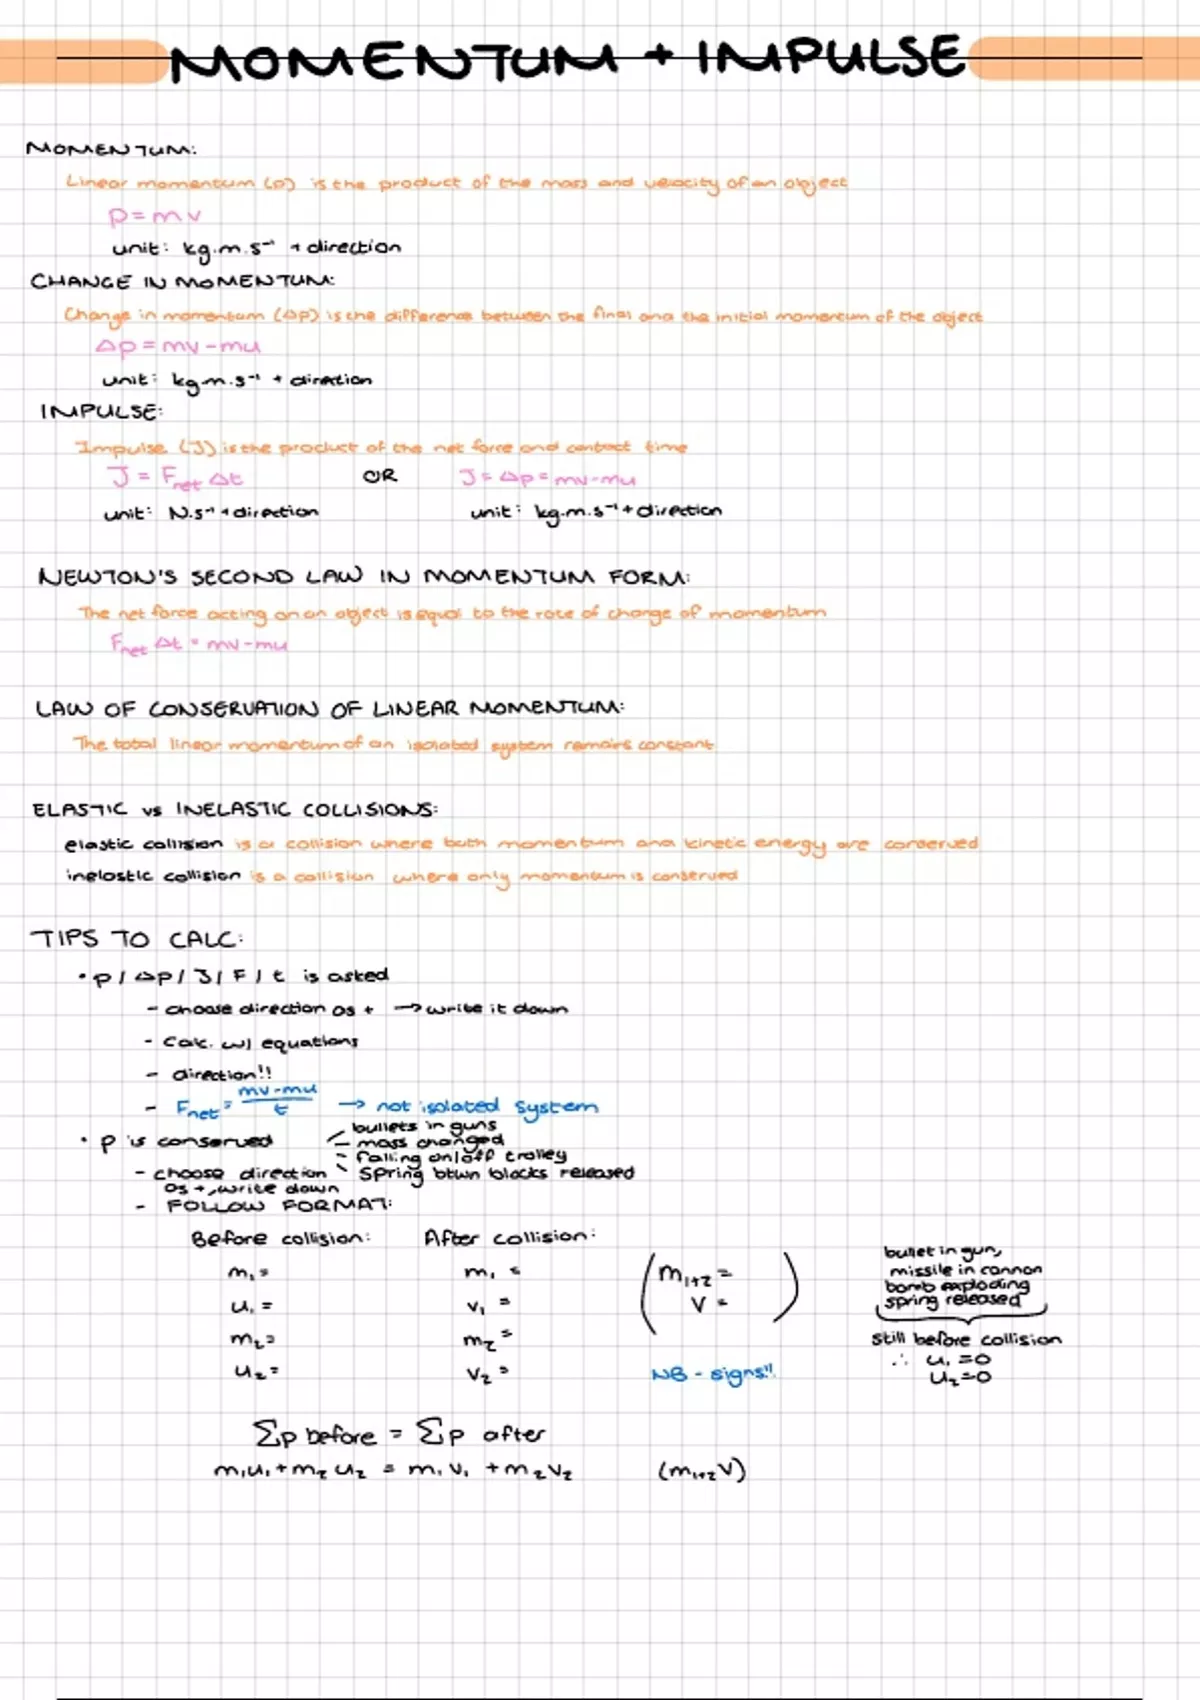 MOMENTUM + IMPULSE
MOMENTUM:
Linear momentum (p) is the product of the mass and velocity of an object
p = mv
unit: kg.m.s⁻¹ + direction
CHANGE IN MOMENTUM:
Change in momentum (Δp) is the difference between the final and the initial momentum of the object
Δp = mv - mu
unit: kg.m.s⁻¹ + direction
IMPULSE:
Impulse (J) is the product of the net force and contact time
J = Fnet Δt OR J = Δp = mv - mu
unit: N.s⁻¹ + direction unit: kg.m.s⁻¹ + direction
NEWTON'S SECOND LAW IN MOMENTUM FORM:
The net force acting on an object is equal to the rate of change of momentum
Fnet Δt = mv - mu
LAW OF CONSERVATION OF LINEAR MOMENTUM:
The total linear momentum of an isolated system remains constant
ELASTIC vs INELASTIC COLLISIONS:
elastic collision is a collision where both momentum and kinetic energy are conserved
inelastic collision is a collision where only momentum is conserved
TIPS TO CALC:
• p / Δp / J / F / t is asked
- choose direction as + → write it down
- calc. w/ equations
- direction!!
- Fnet = mv - mu / t → not isolated system
bullets in guns
• p is conserved - mass changed
- falling on/off trolley
- choose direction - spring btwn blocks released
as +, write down
- FOLLOW FORMAT:
Before collision: After collision:
m₁ = m₁ = (m₁₊₂ =
u₁ = v₁ = v = )
m₂ = m₂ =
u₂ = v₂ = NB - signs!!
bullet in gun,
missile in cannon
bomb exploding
spring released
still before collision
∴ u₁ = 0
u₂ = 0
Σp before = Σp after
m₁u₁ + m₂u₂ = m₁v₁ + m₂v₂ (m₁₊₂v)